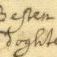 Besten
doghte